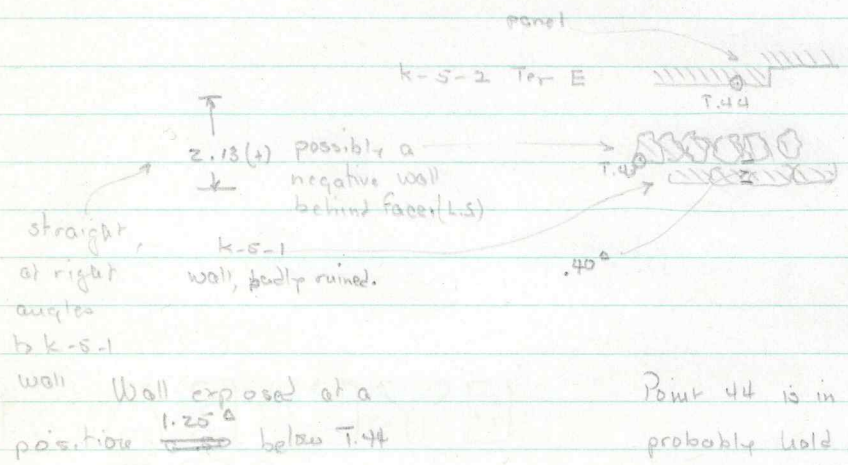 panel
K-5-2 Ter E
T.44
2.13(+) possibly a
negative wall
behind facer (L.S)
T.43
straight,
at right
angles
to K-5-1
wall
K-5-1
wall, badly ruined.
.40△
Wall exposed at a
position 1.25△ below T.44
Point 44 is in
probably hold